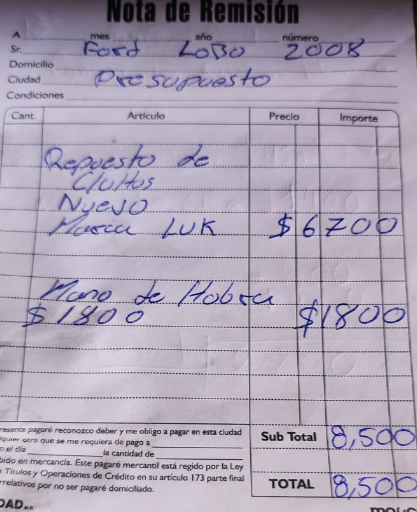 Nota de Remisión
A mes año número
Sr. Ford LOBO 2008
Domicilio
Ciudad Presupuesto
Condiciones
Cant. Artículo Precio Importe
Repuesto de
Clutus
Nuevo
Marca LUK $6700
Mano de Hobra
$1800 $1800
resente pagaré reconozco deber y me obligo a pagar en esta ciudad
lquier otra que se me requiera de pago a
n el día la cantidad de
bido en mercancía. Este pagaré mercantil está regido por la Ley
Títulos y Operaciones de Crédito en su artículo 173 parte final
rrelativos por no ser pagaré domiciliado.
Sub Total 8,500
TOTAL 8,500